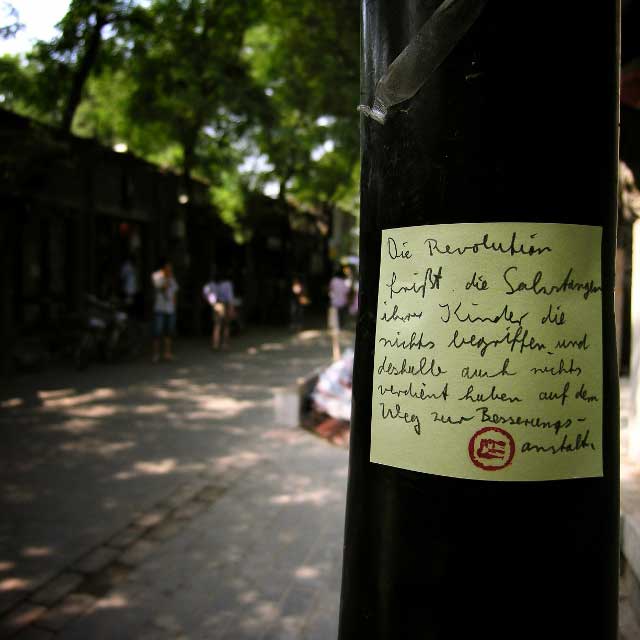 Die Revolution
frißt die Salzstangen
ihrer Kinder die
nichts begriffen und
deshalb auch nichts
verdient haben auf dem
Weg zur Besserungs-
anstalt